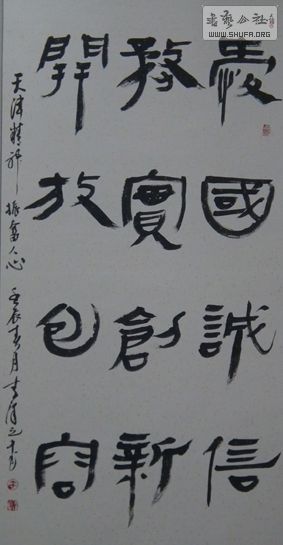 愛國誠信
務實創新
開放包容
天津精神振奮人心 壬辰春月
書藝公社
WWW.SHUFA.ORG